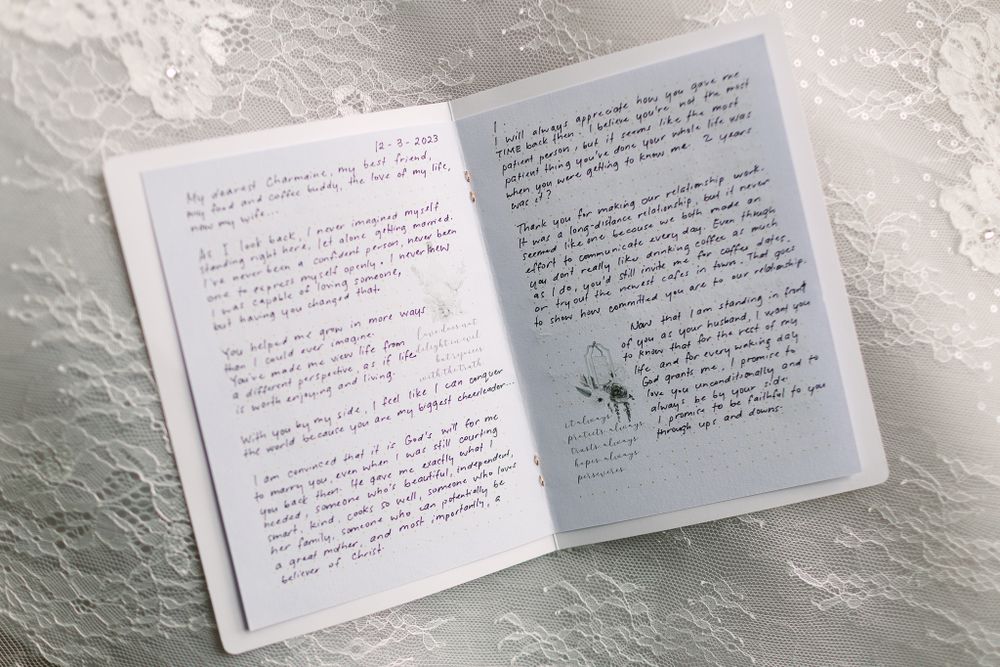 12-3-2023
My dearest Charmaine, my best friend,
my food and coffee buddy, the love of my life,
now my wife...
As I look back, I never imagined myself
standing right here, let alone getting married.
I've never been a confident person, never been
one to express myself openly. I never knew
I was capable of loving someone,
but having you changed that.
You helped me grow in more ways
than I could ever imagine.
You've made me view life from
a different perspective, as if life
is worth enjoying and living.
Love does not
delight in evil
but rejoices
with the truth.
With you by my side, I feel like I can conquer
the world because you are my biggest cheerleader...
I am convinced that it is God's will for me
to marry you, even when I was still courting
you back then. He gave me exactly what I
needed, someone who's beautiful, independent,
smart, kind, cooks so well, someone who loves
her family, someone who can potentially be
a great mother, and most importantly, a
believer of Christ.
I
I will always appreciate how you gave me
TIME back then. I believe you're not the most
patient person, but it seems like the most
patient thing you've done your whole life was
when you were getting to know me. 2 years
was it?
Thank you for making our relationship work.
It was a long-distance relationship, but it never
seemed like one because we both made an
effort to communicate every day. Even though
you don't really like drinking coffee as much
as I do, you'd still invite me for coffee dates,
or try out the newest cafes in town. That goes
to show how committed you are to our relationship.
Now that I am standing in front
of you as your husband, I want you
to know that for the rest of my
life and for every waking day
God grants me, I promise to
love you unconditionally and to
always be by your side.
I promise to be faithful to you
through ups and downs.
it always
protects always
trusts always
hopes always
perseveres.